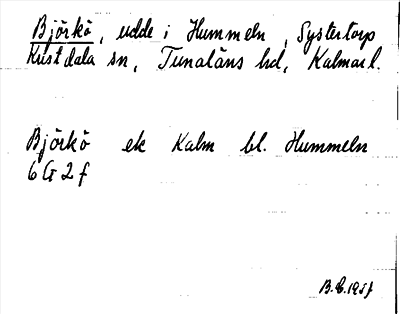 Björkö, udde i Hummeln, Systertorp
Kristdala sn, Tunaläns hd, Kalmar l.
Björkö ek Kalm bl. Hummeln
6 G 2 f
B.E. 1957